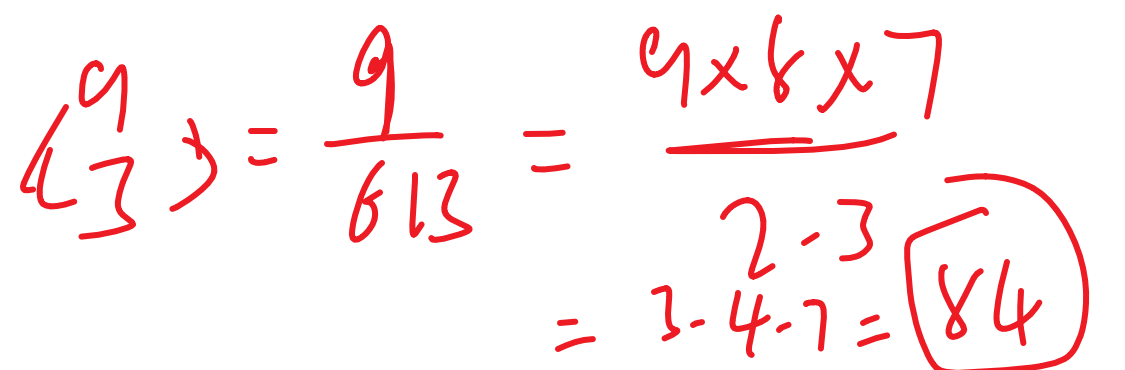 (9 3) = 9 / 6!3 = 9×8×7 / 2·3
= 3·4·7 = 84